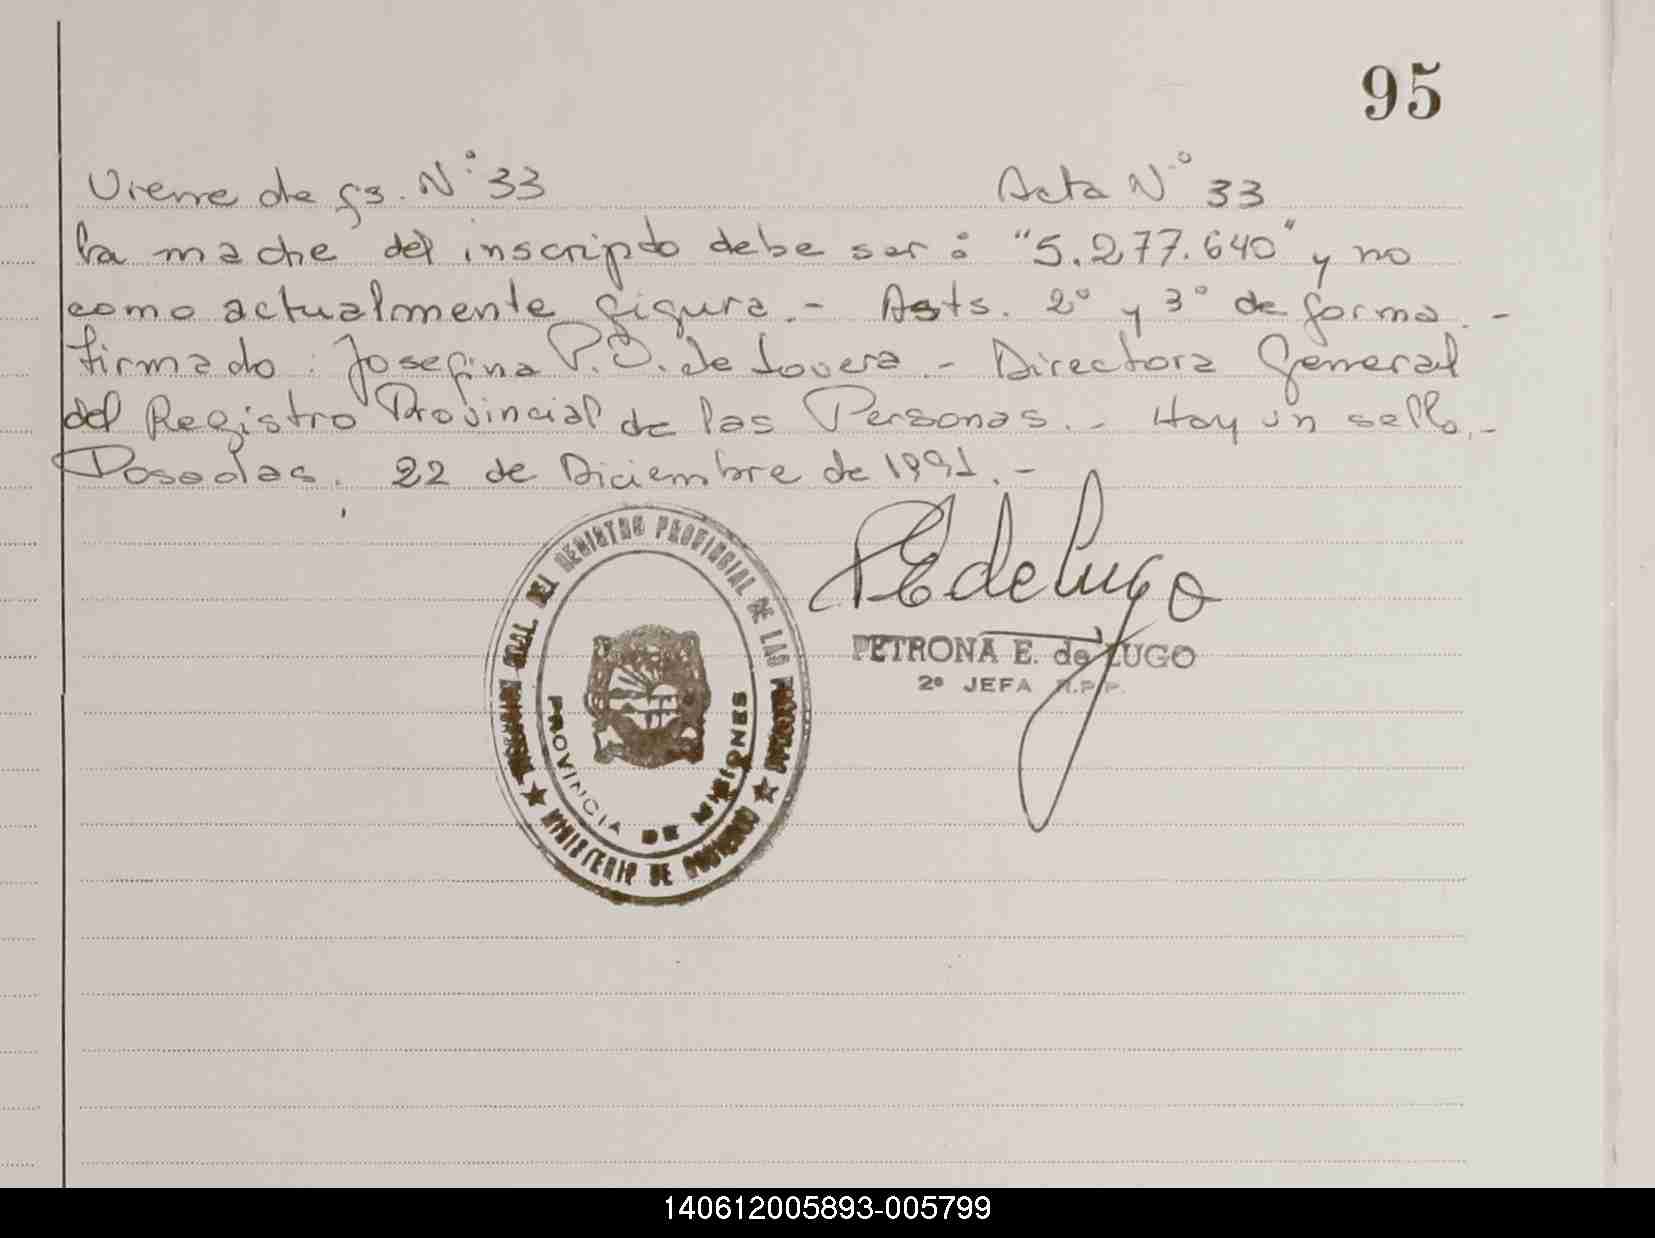 95
Viene de fs. N° 33 Acta N° 33
la madre del inscripto debe ser: "5.277.640" y no
como actualmente figura.- Arts. 2° y 3° de forma.-
firmado: Josefina P.D. de Lovera.- Directora General
del Registro Provincial de las Personas.- Hay un sello.-
Posadas, 22 de Diciembre de 1991.-
PEdeLugo
PETRONA E. de LUGO
2º JEFA R.P.P.
GRAL. DEL REGISTRO PROVINCIAL DE LAS
MINISTERIO DE GOBIERNO
PROVINCIA DE MISIONES
140612005893-005799